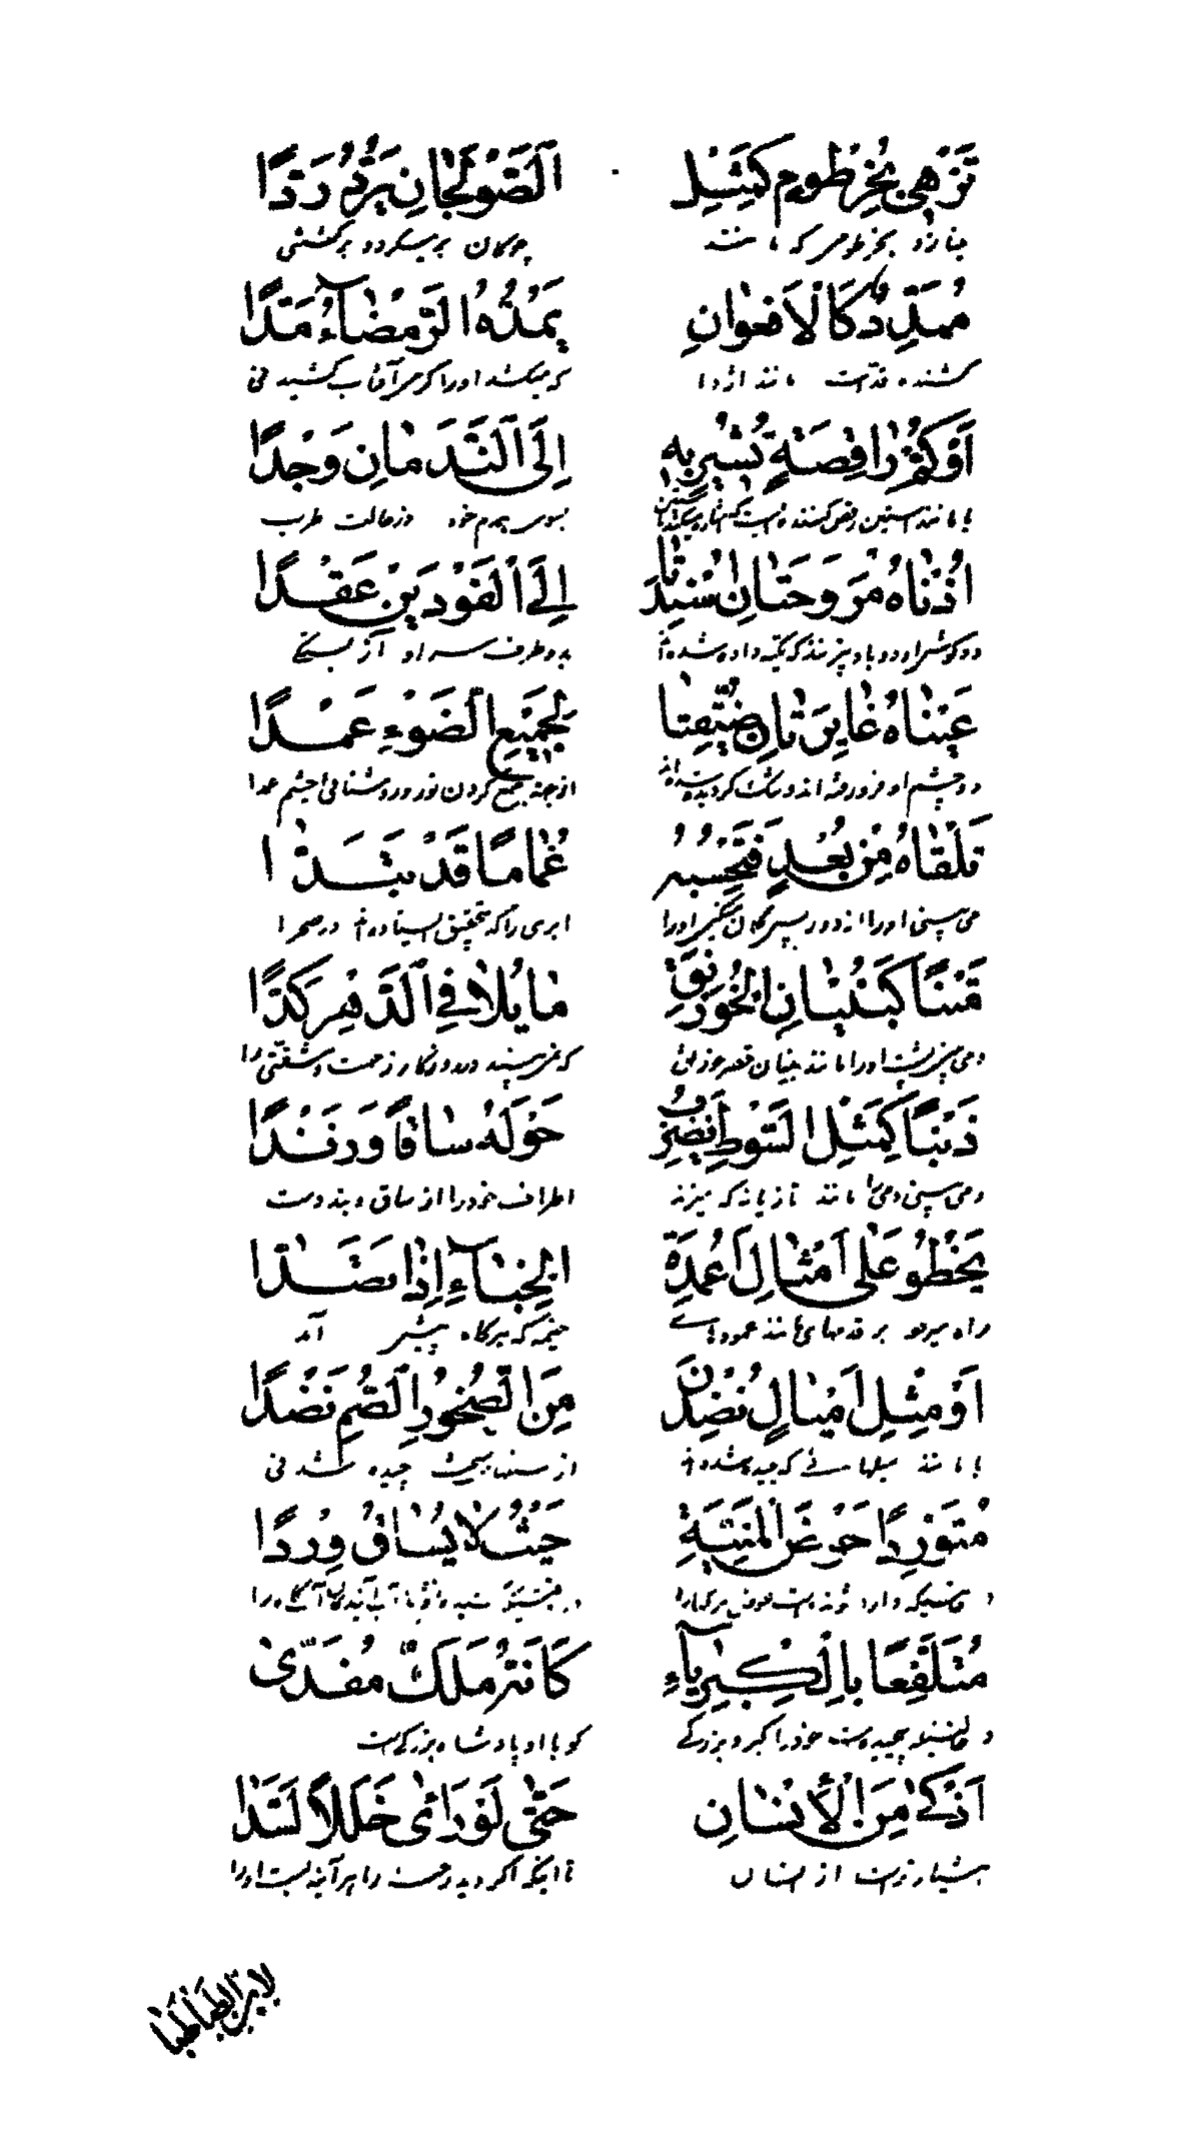 تَزْهِي بِخُرْطُومٍ كَمِثْلِ الصَّوْلَجَانِ يَرُدُّ رَدًّا
بخرطومی که مانند چوکان بر میکردد برکشتنی
مُمَدَّدٌ كَالْأَفْعُوَانِ يَمُدُّهُ الرَّمْضَاءُ مَدًّا
کشنده مانند اژدها که میکشد اورا کرمی آفتاب کشیدنی
أَوْ كُمِّ رَاقِصَةٍ تُشِيرُ بِهِ إِلَى النَّدْمَانِ وَجْدًا
یا مانند آستین رقص کننده بسوی همدم خود از حالت طرب
أُذْنَاهُ مِرْوَحَتَانِ أُسْنِدَتَا إِلَى الْفَوْدَيْنِ عَقْدًا
دو کوش او دو باد بزنند که تکیه داده شده بدو طرف سر او از بستکی
عَيْنَاهُ غَايِرَتَانِ ضُيِّقَتَا لِجَمْعِ الضَّوْءِ عَمْدًا
دو چشم او فرو رفته اند و تنک کردیده شده اند از جهة جمع کردن نور و روشنائی چشم عمدا
تَلْقَاهُ مِنْ بُعْدٍ فَتَحْسَبُهُ غَمَامًا قَدْ تَبَدَّا
می بینی اورا از دور پس کمان میکنی اورا ابری را که بتحقیق در صحرا
مَتْنًا كَبُنْيَانِ الْخَوَرْنَقِ مَا يُلَاقِي الدَّهْرَ كَدًّا
و می بینی پشت اورا مانند بنیان قصر خورنق که نمی بیند در روزکار زحمت و مشقتی را
ذَنَبًا كَمِثْلِ السَّوْطِ يَضْرِبُ حَوْلَهُ سَاقًا وَزَنْدًا
و می بینی دمی مانند تازیانه که میزند اطراف خود را از ساق و بند دست
يَخْطُو عَلَى أَمْثَالِ أَعْمِدَةِ الْخِبَاءِ إِذَا تَصَدَّا
راه میرود بر قدمهای مانند عمودهای خیمه که هرکاه پیش آمد
أَوْ مِثْلِ أَمْيَالٍ نُضِدْنَ مِنَ الصُّخُورِ الصُّمِّ نَضْدًا
یا مانند میلهائی که چیده شده از سنکهای سخت چیده شدنی
مُتَوَرِّدًا حَوْضَ الْمَنِيَّةِ حَيْثُ لَا يُسَاقُ وِرْدًا
مُتَلَفِّعًا بِالْكِبْرِيَاءِ كَأَنَّهُ مَلَكٌ مُفَدًّى
پیچیده است خود را کبر و بزرکی کویا او پادشاه بزرکی است
أَذْكَى مِنَ الْإِنْسَانِ حَتَّى لَوْ رَأَى خَلَلًا لَسَدَّا
هشیارتر است از انسان تا اینکه اکر دیده رخنه را هر آینه بست اورا
لابن الطباطبا